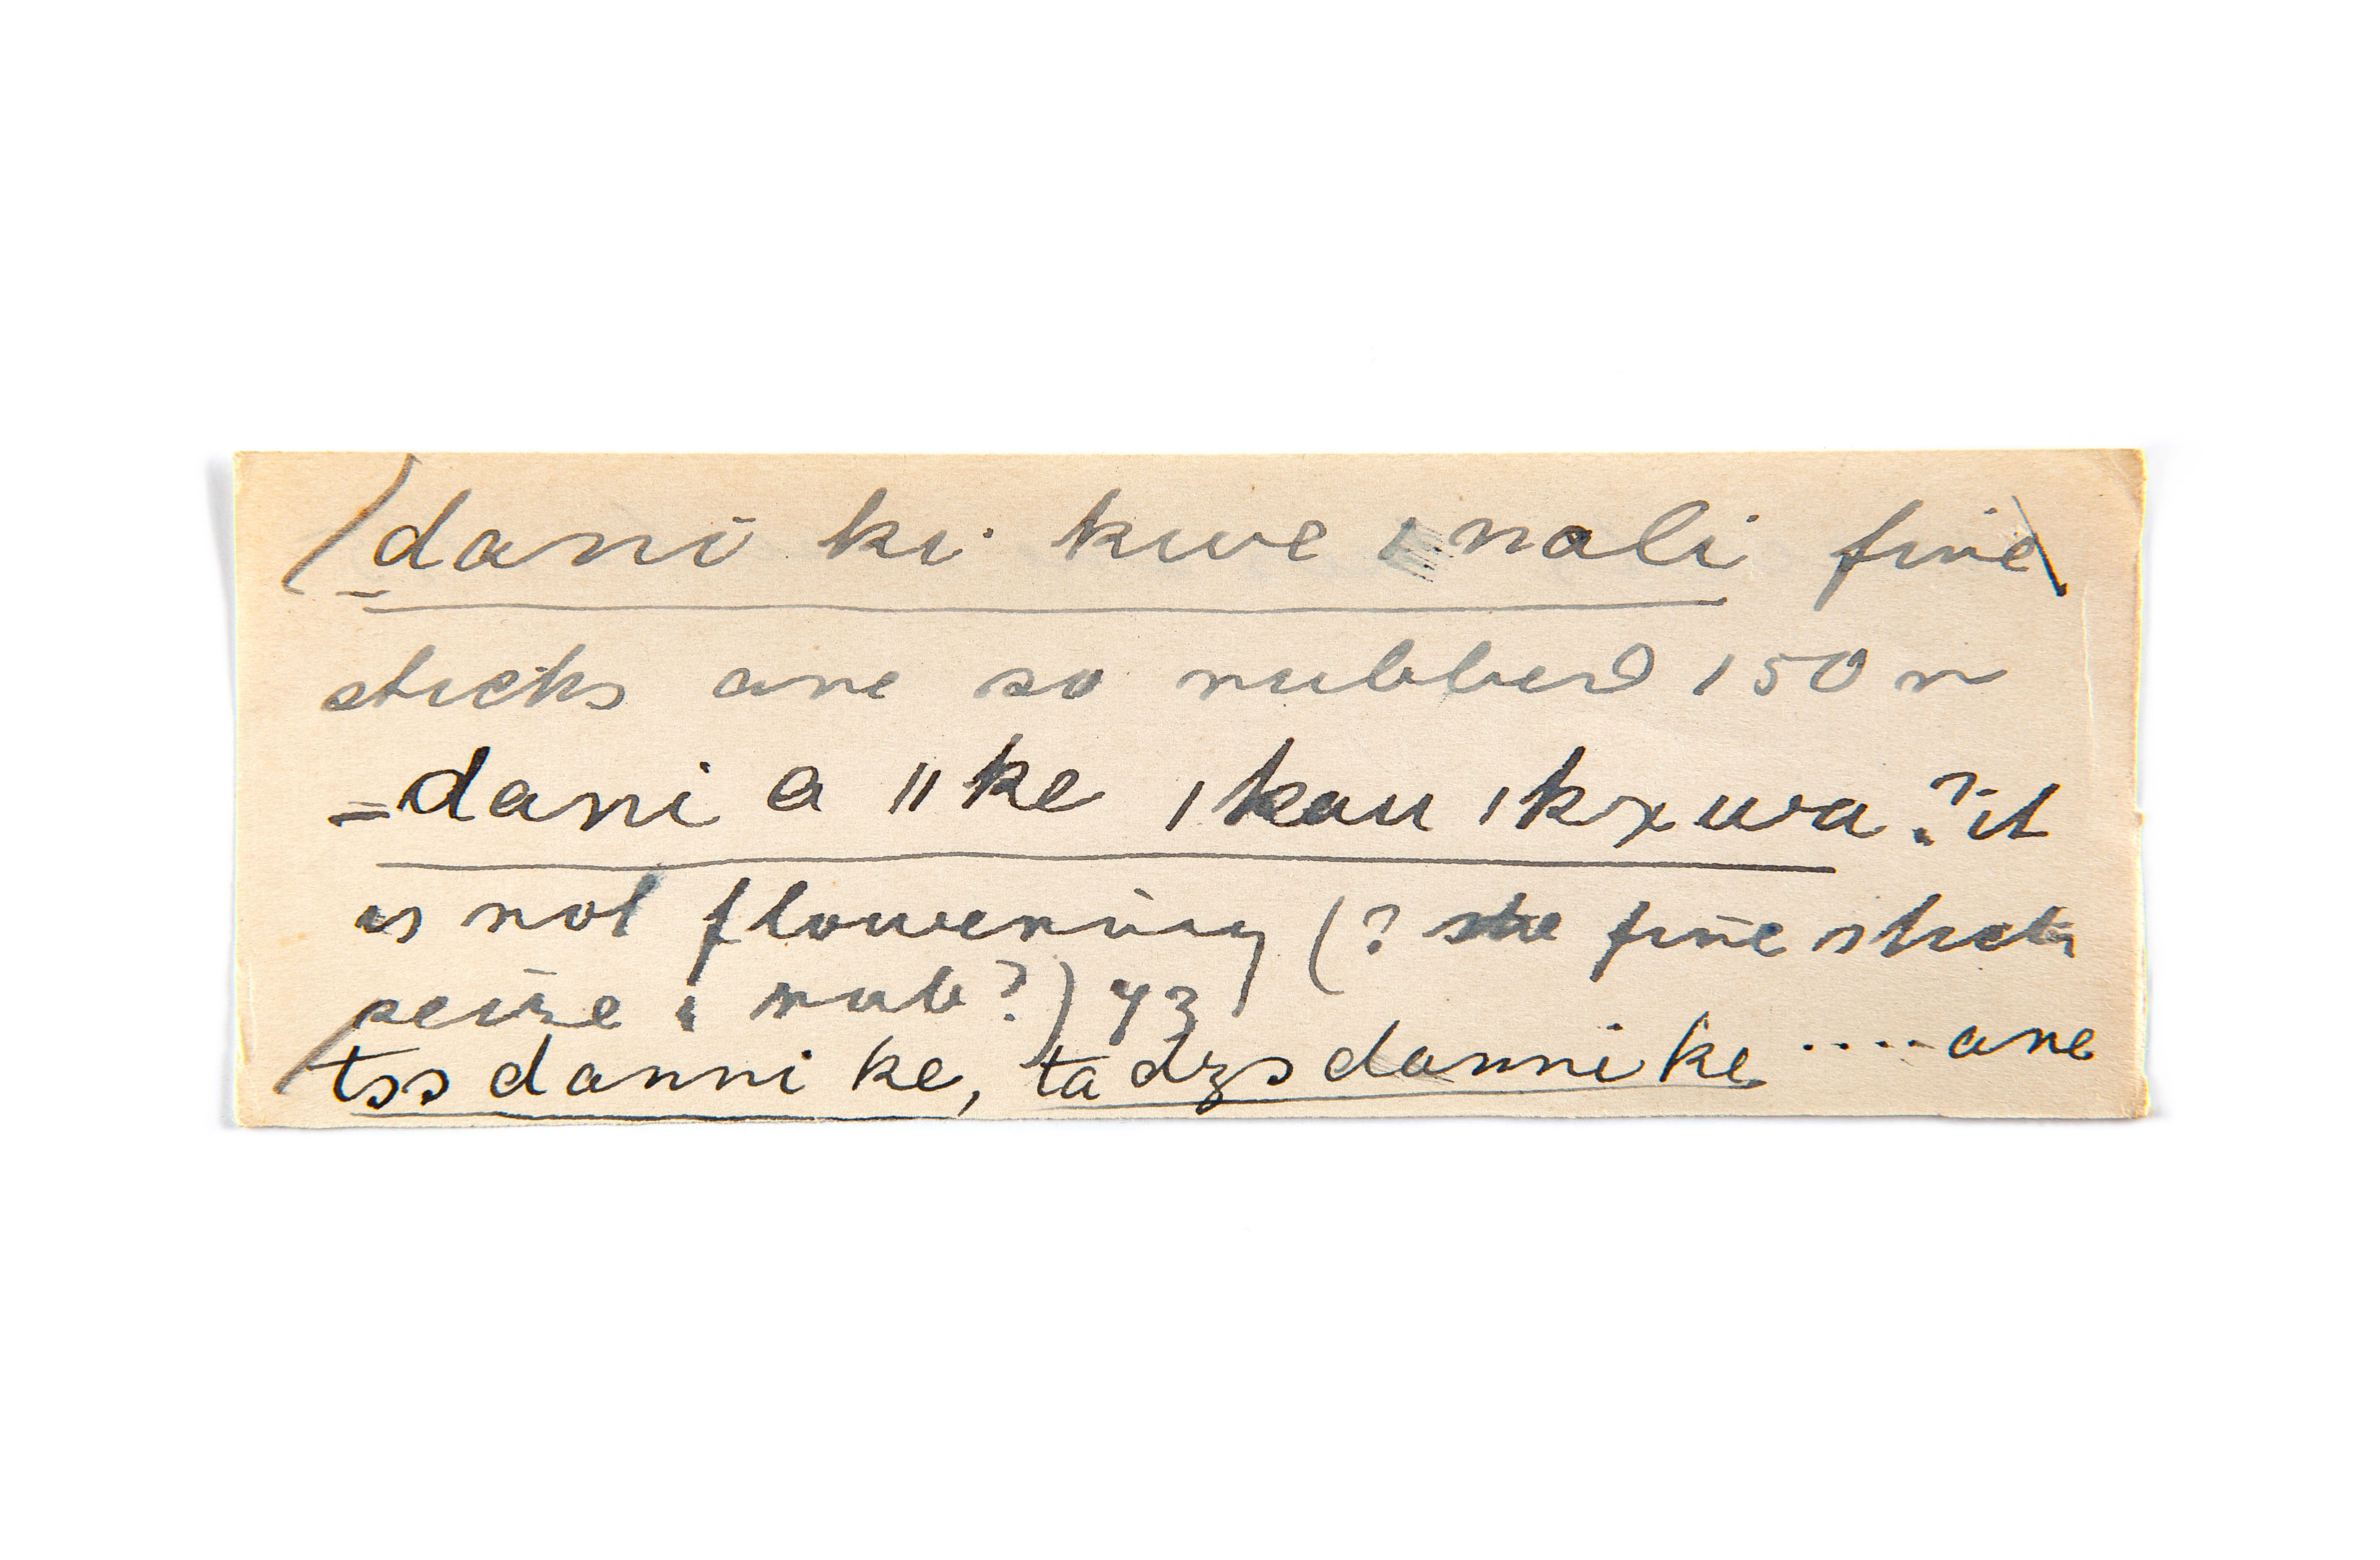 dani ki· kwe nali fire
sticks are so rubbed 150 r
=dani a ǁke ǀkau ǀkxwa ? it
is not flowering (? fire sticks
seize & rub?) yz
tss danni ke, ta dzs danni ke .... are